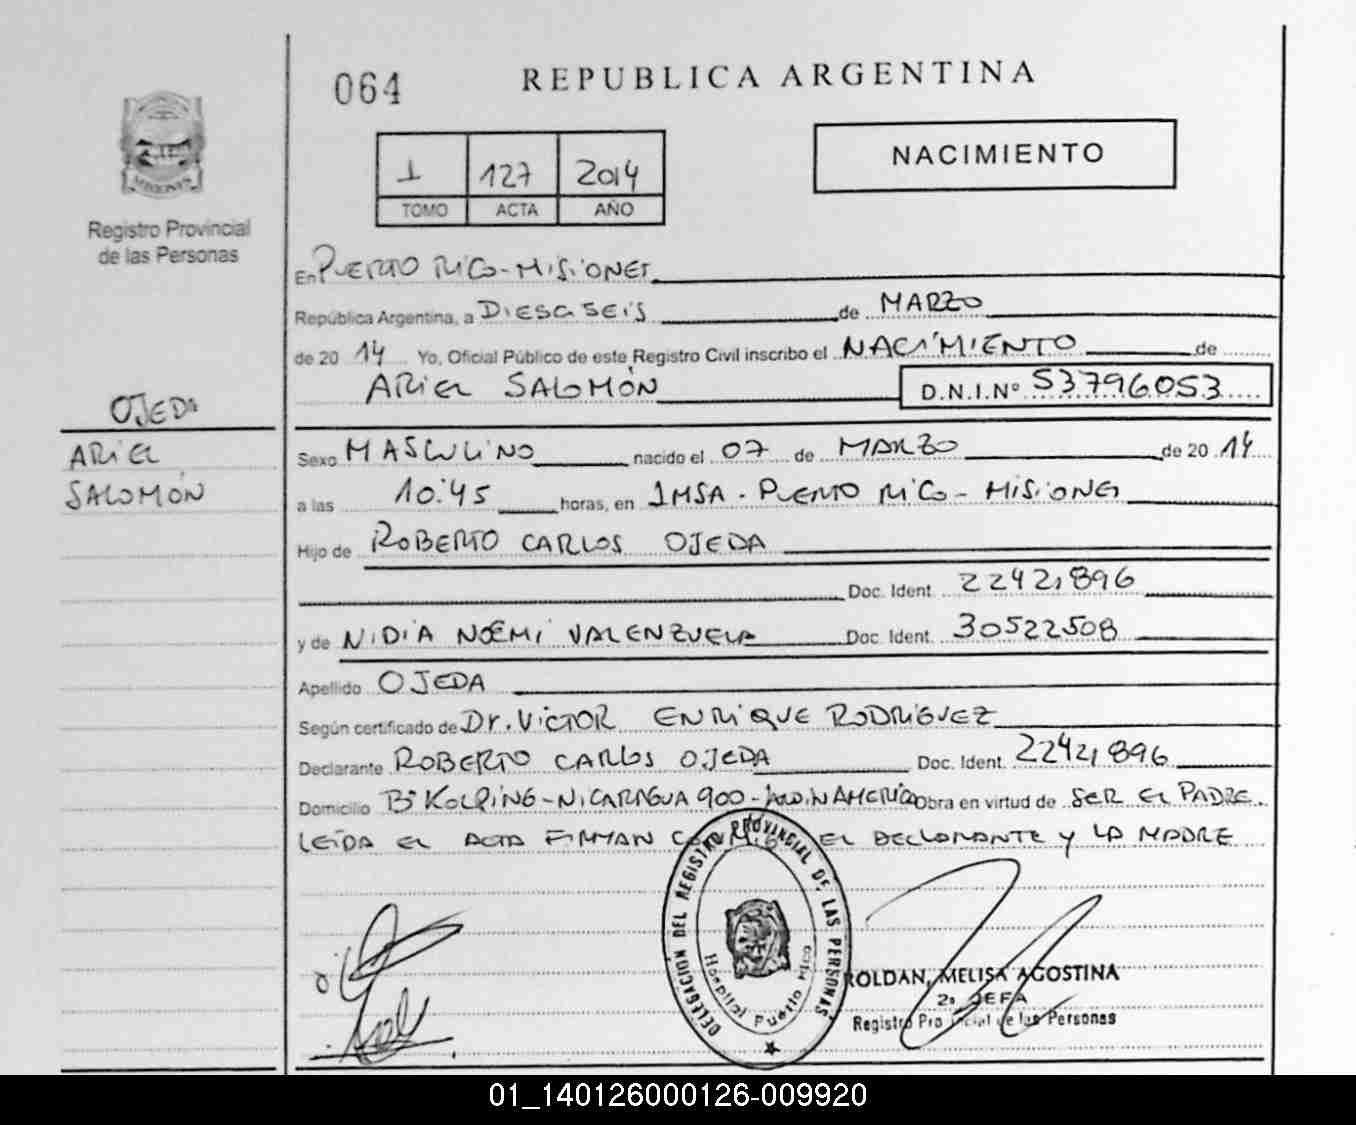 064
REPUBLICA ARGENTINA
NACIMIENTO
1 127 2014
TOMO ACTA AÑO
Registro Provincial
de las Personas
MISIONES
En PUERTO RICO - MISIONES
República Argentina, a DIESCISEIS de MARZO
de 20 14 Yo, Oficial Público de este Registro Civil inscribo el NACIMIENTO de
ARIEL SALOMÓN D.N.I.Nº 53796053
OJEDA
ARIEL
SALOMÓN
Sexo MASCULINO nacido el 07 de MARZO de 20 14
a las 10:45 horas, en IMSA - PUERTO RICO - MISIONES
Hijo de ROBERTO CARLOS OJEDA
Doc. Ident. 22421896
y de NIDIA NOEMI VALENZUELA Doc. Ident. 30522508
Apellido OJEDA
Según certificado de Dr. VICTOR ENRIQUE RODRIGUEZ
Declarante ROBERTO CARLOS OJEDA Doc. Ident. 22421896
Domicilio Bº KOLPING - NICARAGUA 900 - JARDIN AMERICA Obra en virtud de SER EL PADRE.
LEIDA EL ACTA FIRMAN CONMIGO EL DECLARANTE Y LA MADRE
DELEGACIÓN DEL REGISTRO PROVINCIAL DE LAS PERSONAS
Hospital Puerto Rico
ROLDAN, MELISA AGOSTINA
2ª JEFA
Registro Provincial de las Personas
01_140126000126-009920